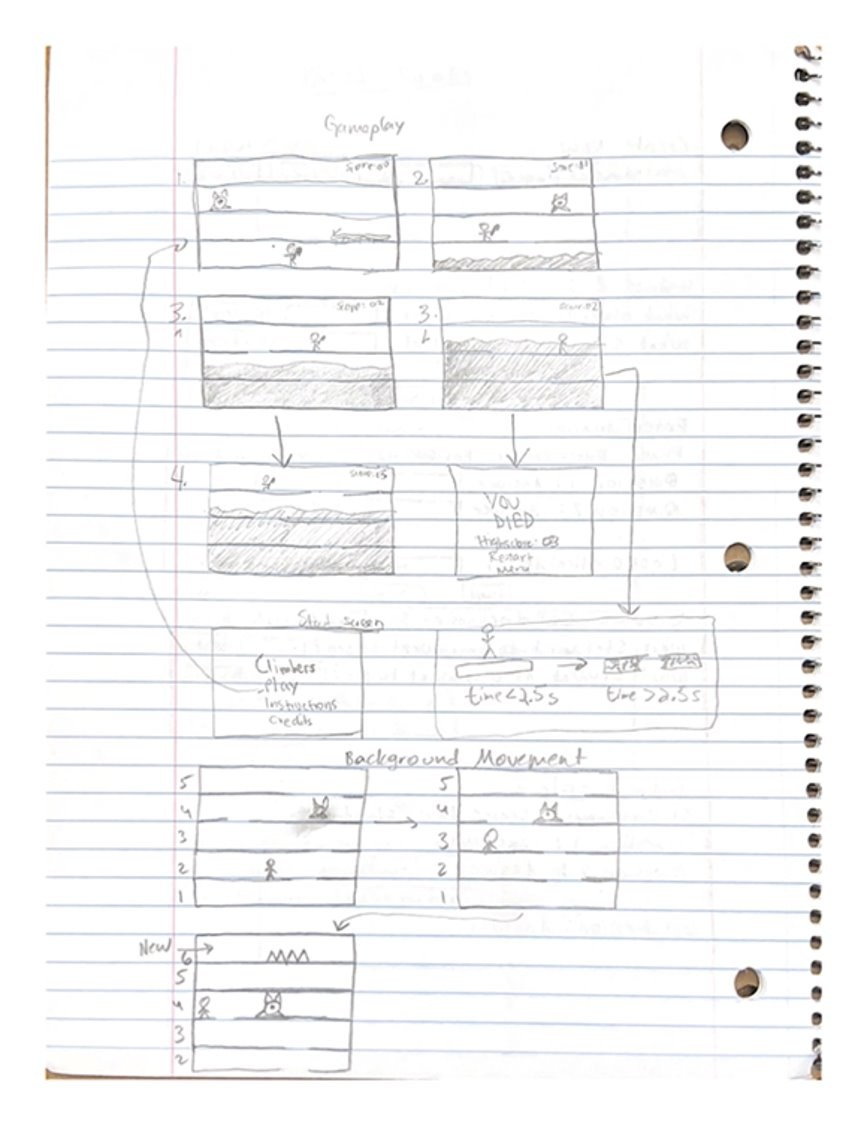 Gameplay
1.
Score:00
2
Score:01
3.
Score:02
3.
Score:02
b
4.
Score:03
YOU
DIED
Highscore: 03
Restart
Menu
Start screen
Climbers
Play
Instructions
Credits
time<2.5s
time >2.5s
Background Movement
5
4
3
2
1
5
4
3
2
1
New
6
5
4
3
2